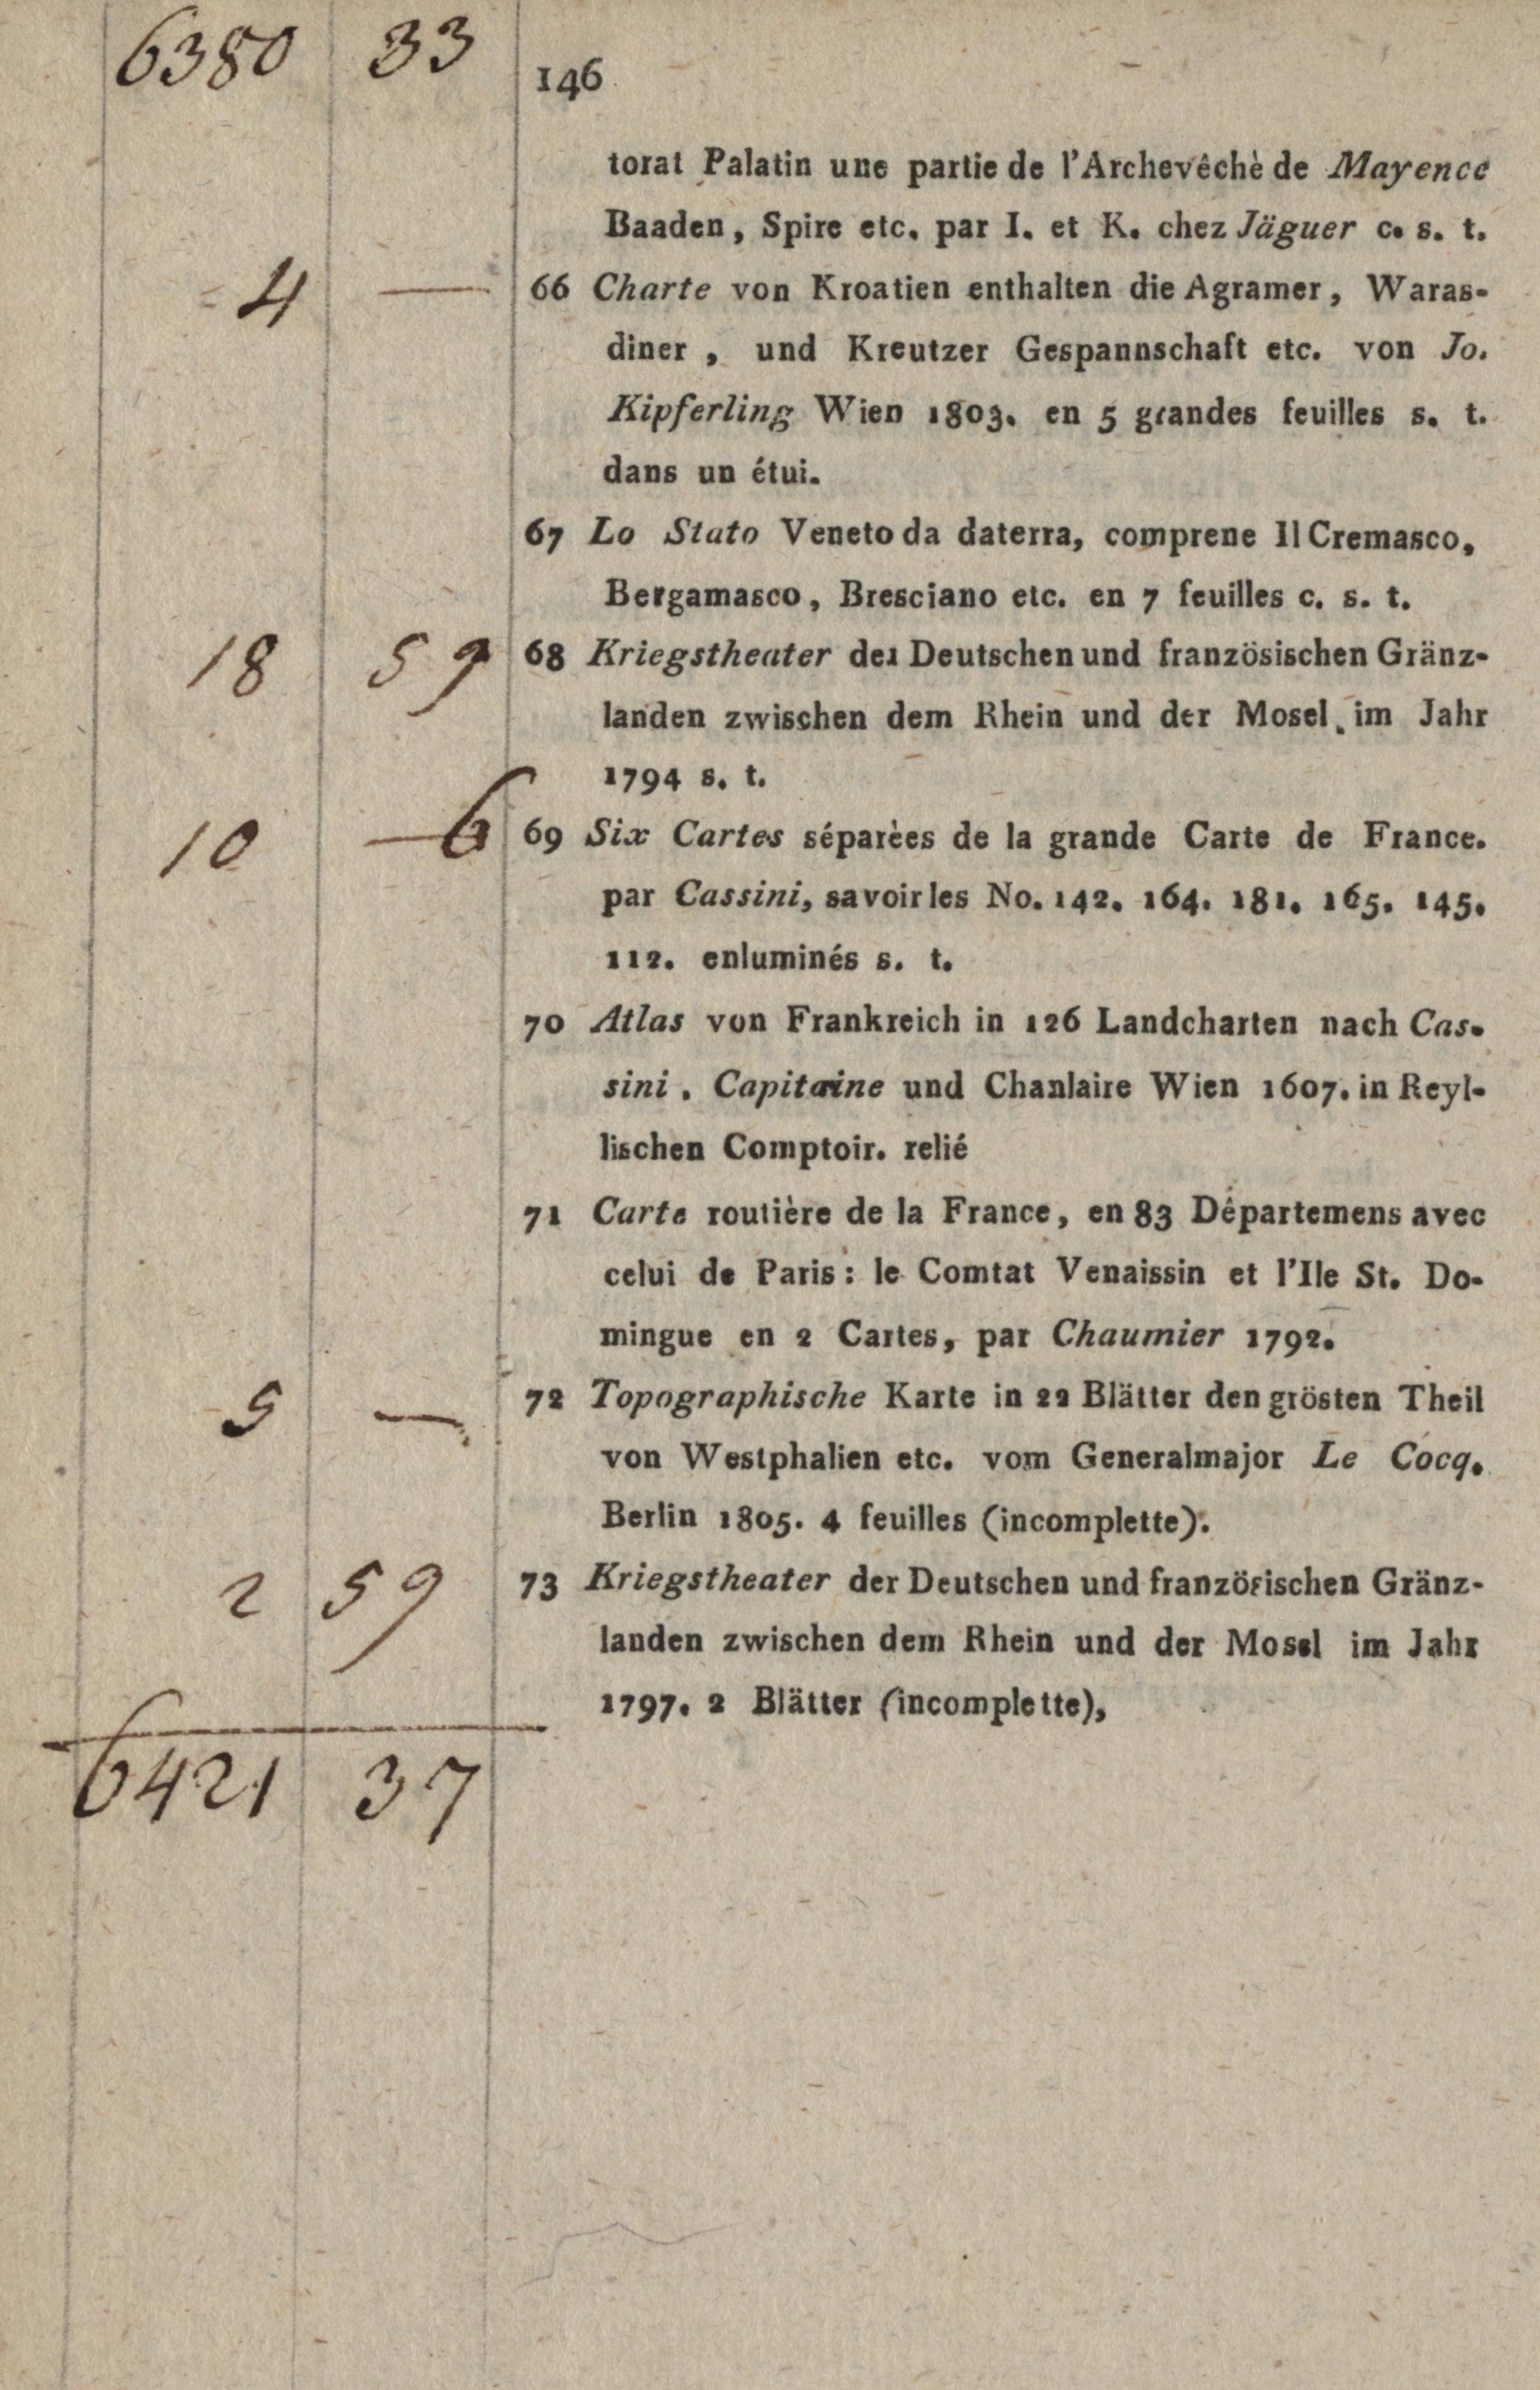 6380 33
146
torat Palatin une partie de l'Archevêchè de Mayence
Baaden, Spire etc. par I. et K. chez Jäguer c. s. t.
4 — 66 Charte von Kroatien enthalten die Agramer, Waras-
diner, und Kreutzer Gespannschaft etc. von Jo.
Kipferling Wien 1803. en 5 grandes feuilles s. t.
dans un étui.
67 Lo Stato Veneto da daterra, comprene Il Cremasco,
Bergamasco, Bresciano etc. en 7 feuilles c. s. t.
18 59 68 Kriegstheater der Deutschen und französischen Gränz-
landen zwischen dem Rhein und der Mosel. im Jahr
1794 s. t.
10 6 69 Six Cartes séparèes de la grande Carte de France.
par Cassini, savoir les No. 142. 164. 181. 165. 145.
112. enluminés s. t.
70 Atlas von Frankreich in 126 Landcharten nach Cas-
sini. Capitaine und Chanlaire Wien 1607. in Reyl-
lischen Comptoir. relié
71 Carte routière de la France, en 83 Départemens avec
celui de Paris: le Comtat Venaissin et l'Ile St. Do-
mingue en 2 Cartes, par Chaumier 1792.
5 — 72 Topographische Karte in 22 Blätter den grösten Theil
von Westphalien etc. vom Generalmajor Le Cocq.
Berlin 1805. 4 feuilles (incomplette).
2 59 73 Kriegstheater der Deutschen und französischen Gränz-
landen zwischen dem Rhein und der Mosel im Jahr
1797. 2 Blätter (incomplette),
6421 37